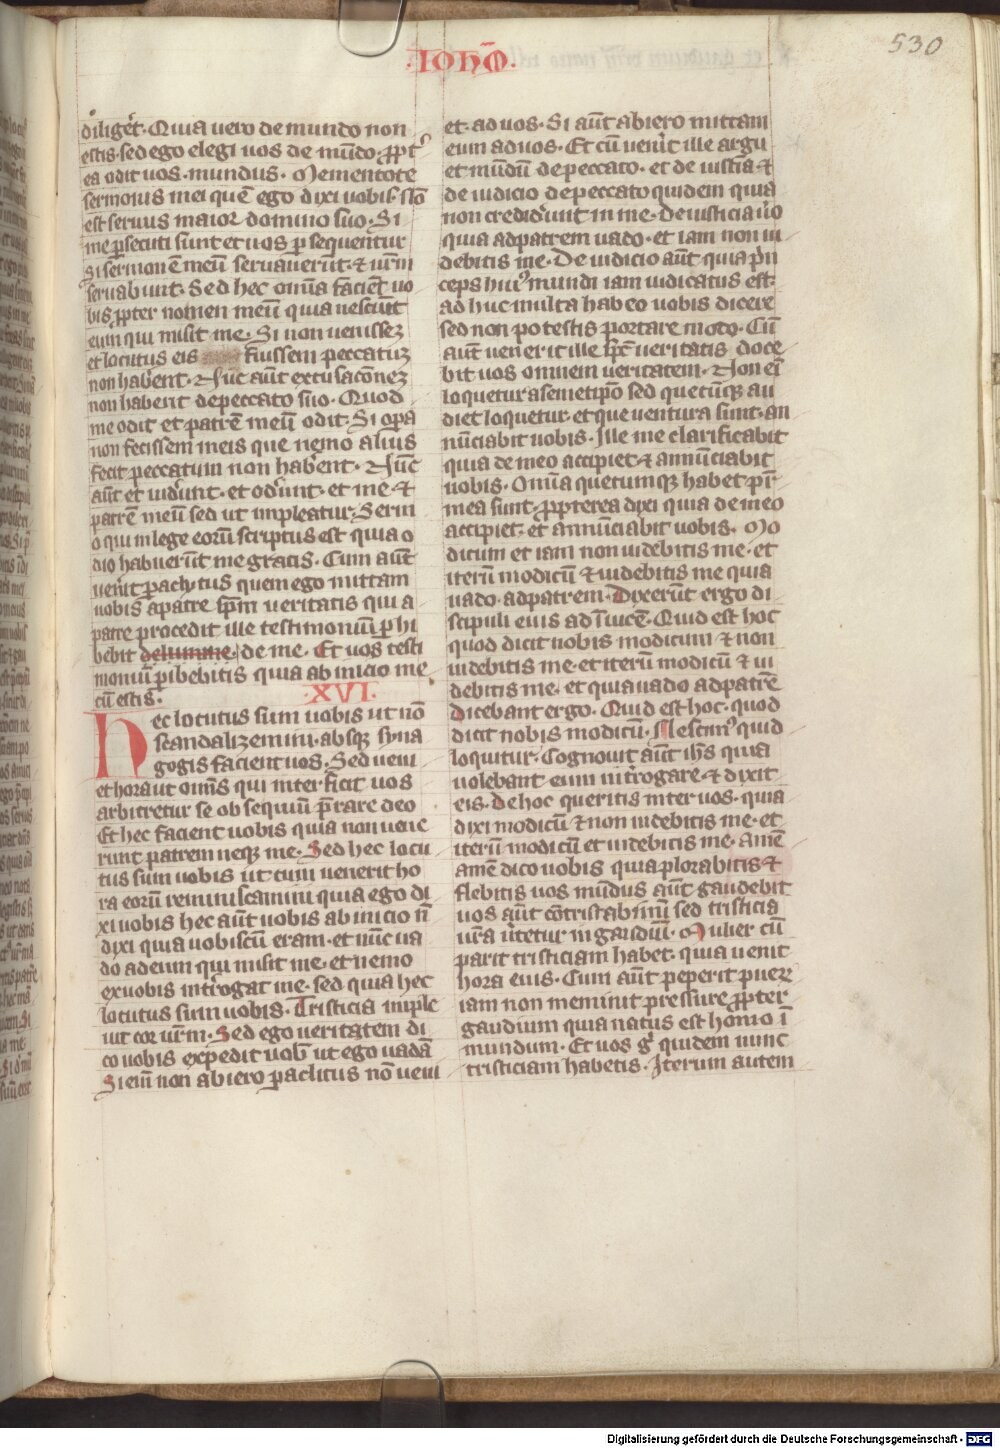 530
·IOHȎ·
diligēt· Quia vero de mundo non
estis· sed ego elegi uos de mūdo· ꝓpt᷑
ea odit uos· mundus· Mementote
sermonis mei quē ego dixi uobis· Nō
est seruus maior domino suo· Si
me ꝑsecuti sunt et uos ꝑ sequentur
Si sermonē meū seruauerūt· ⁊ ur̄m
seruabunt· Sed hec oīnia faciēt uo
bis ꝓpter nomen meū quia nesciūt
eum qui misit me· Si non uenissez
et locutus eis fuissem peccatuz
non haber̄ent· Nūc aūt excusacōnez
non haberent de peccato suo· Quod
me odit et patrē meū odit· Si oꝑa
non fecissem in eis que nemo alius
fecit peccatum non haber̄ent· Nūc
aūt et uider̄unt· et oder̄unt· et me· ⁊
patrē meū sed ut impleatur Serm
o qui in lege eorū scriptus est quia o
dio habuerūt me gratis· Cum aūt
uenīt ꝑaclytus quem ego mittam
uobis a patre sp̄m ueritatis qui a
patre procedit ille testimoniū ꝑhi
bebit de lumine de me· Et uos testi
moniū ꝑibebitis quia ab inicio me
cū estis·
·XVI·
Hec locutus sum uobis ut nō
scandalizemini· absqꝫ syna
gogis facient uos· Sed ueni
et hora ut om̄is qui inter ficit uos
arbitretur se ob sequiū p̄stare deo
Et hec facient uobis quia non noue
runt patrem neqꝫ me· Sed hec locu
tus sum uobis ut cum uenerit ho
ra eorū reminiscamini quia ego di
xi uobis hec aūt uobis ab inicio n̄
dixi quia uobiscū eram· et nūc ua
do ad eum qui misit me· et nemo
ex uobis int̄rogat me· sed quia hec
locutus sum uobis· Tristicia imple
uit cor ur̄m· Sed ego ueritatem di
co uobis expedit uob̄ ut ego uadā
Si em̄ non abiero ꝑaclitus nō ueni
et· ad uos· Si aūt abiero mittam
eum ad uos· Et cū uener̄it ille argu
et mūdū de peccato· et de iusticia ⁊
de iudicio de peccato quidem quia
non crediderūt in me· De iusticia ūo
quia ad patrem uado· et iam non ui
debitis me· De iudicio aūt quia p̄n
ceps huiꝰ mundi iam iudicatus est·
ad huc multa habeo uobis dicere
sed non potestis portare modo· Cū
aūt uenerit ille sp̄c ueritatis doce
bit uos omnem ueritatem· Non ei᷑
loquetur a semetip̄o sed quecūqꝫ au
diet loquetur· et que ventura sunt· an
nūciabit uobis· Ille me clarificabit
quia de meo accipiet ⁊ annūciabit
uobis· Omīa quecumqꝫ habet pr̄
mea sunt· ꝓpterea dixi quia de meo
accipiet· et annūciabit uobis· Mo
dicum et iam non uidebitis me· et
iterū modicū ⁊ uidebitis me quia
uado· ad patrem· Dixerūt ergo di
scipuli eius ad īuicē· Quid est hoc
quod dicit nobis modicum ⁊ non
uidebitis me· et iterū modicū ⁊ ui
debitis me· et quia uado ad patrē
Dicebant ergo· Quid est hoc· quod
dicit nobis modicū· Nescimꝰ quid
loquitur· Cognouit aūt ih̄s quia
uolebant eum int̄rogare· ⁊ dixit
eis· de hoc queritis inter uos· quia
dixi modicū ⁊ non uidebitis me· et
iterū modicū et uidebitis me· Amē
amē dico uobis quia plorabitis ⁊
flebitis uos mūdus aūt gaudebit
uos aūt cōtristabīmī sed tristicia
ur̄a ūtetur in gaudiū· Mulier cū
parit tristiciam habet· quia uenit
hora eius· Cum aūt peperit puerz
iam non meminit pressure ꝓpter
gaudium quia natus est homo ī
mundum· Et uos gͦ quidem nunc
tristiciam habetis· Iterum autem
Digitalisierung gefördert durch die Deutsche Forschungsgemeinschaft - DFG